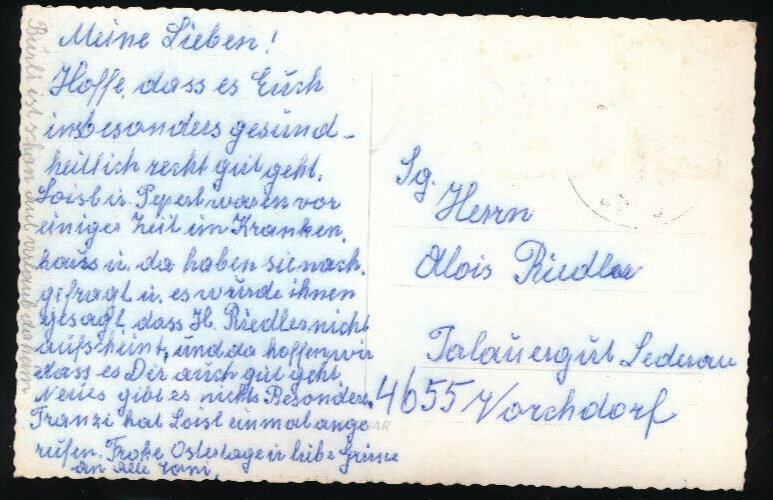 Meine Lieben!
Hoffe, dass es Euch
insbesonders gesund-
heitlich recht gut geht.
Loisl u. Pepperl waren vor
einiger Zeit im Kranken,
haus u. da haben sie nach,
gefragt u. es wurde ihnen
gesagt, dass H. Riedler nicht
aufscheint, und da hoffen wir
dass es Dir auch gut geht
Neues gibt es nichts Besonderes.
Franzi hat Loisl einmal ange
rufen. Frohe Ostertage u liebe Grüsse
an Alle
Burli ist schon auf Urlaub daheim
Sg.
Herrn
Alois Riedler
Talauergut Lederau
4655 Vorchdorf